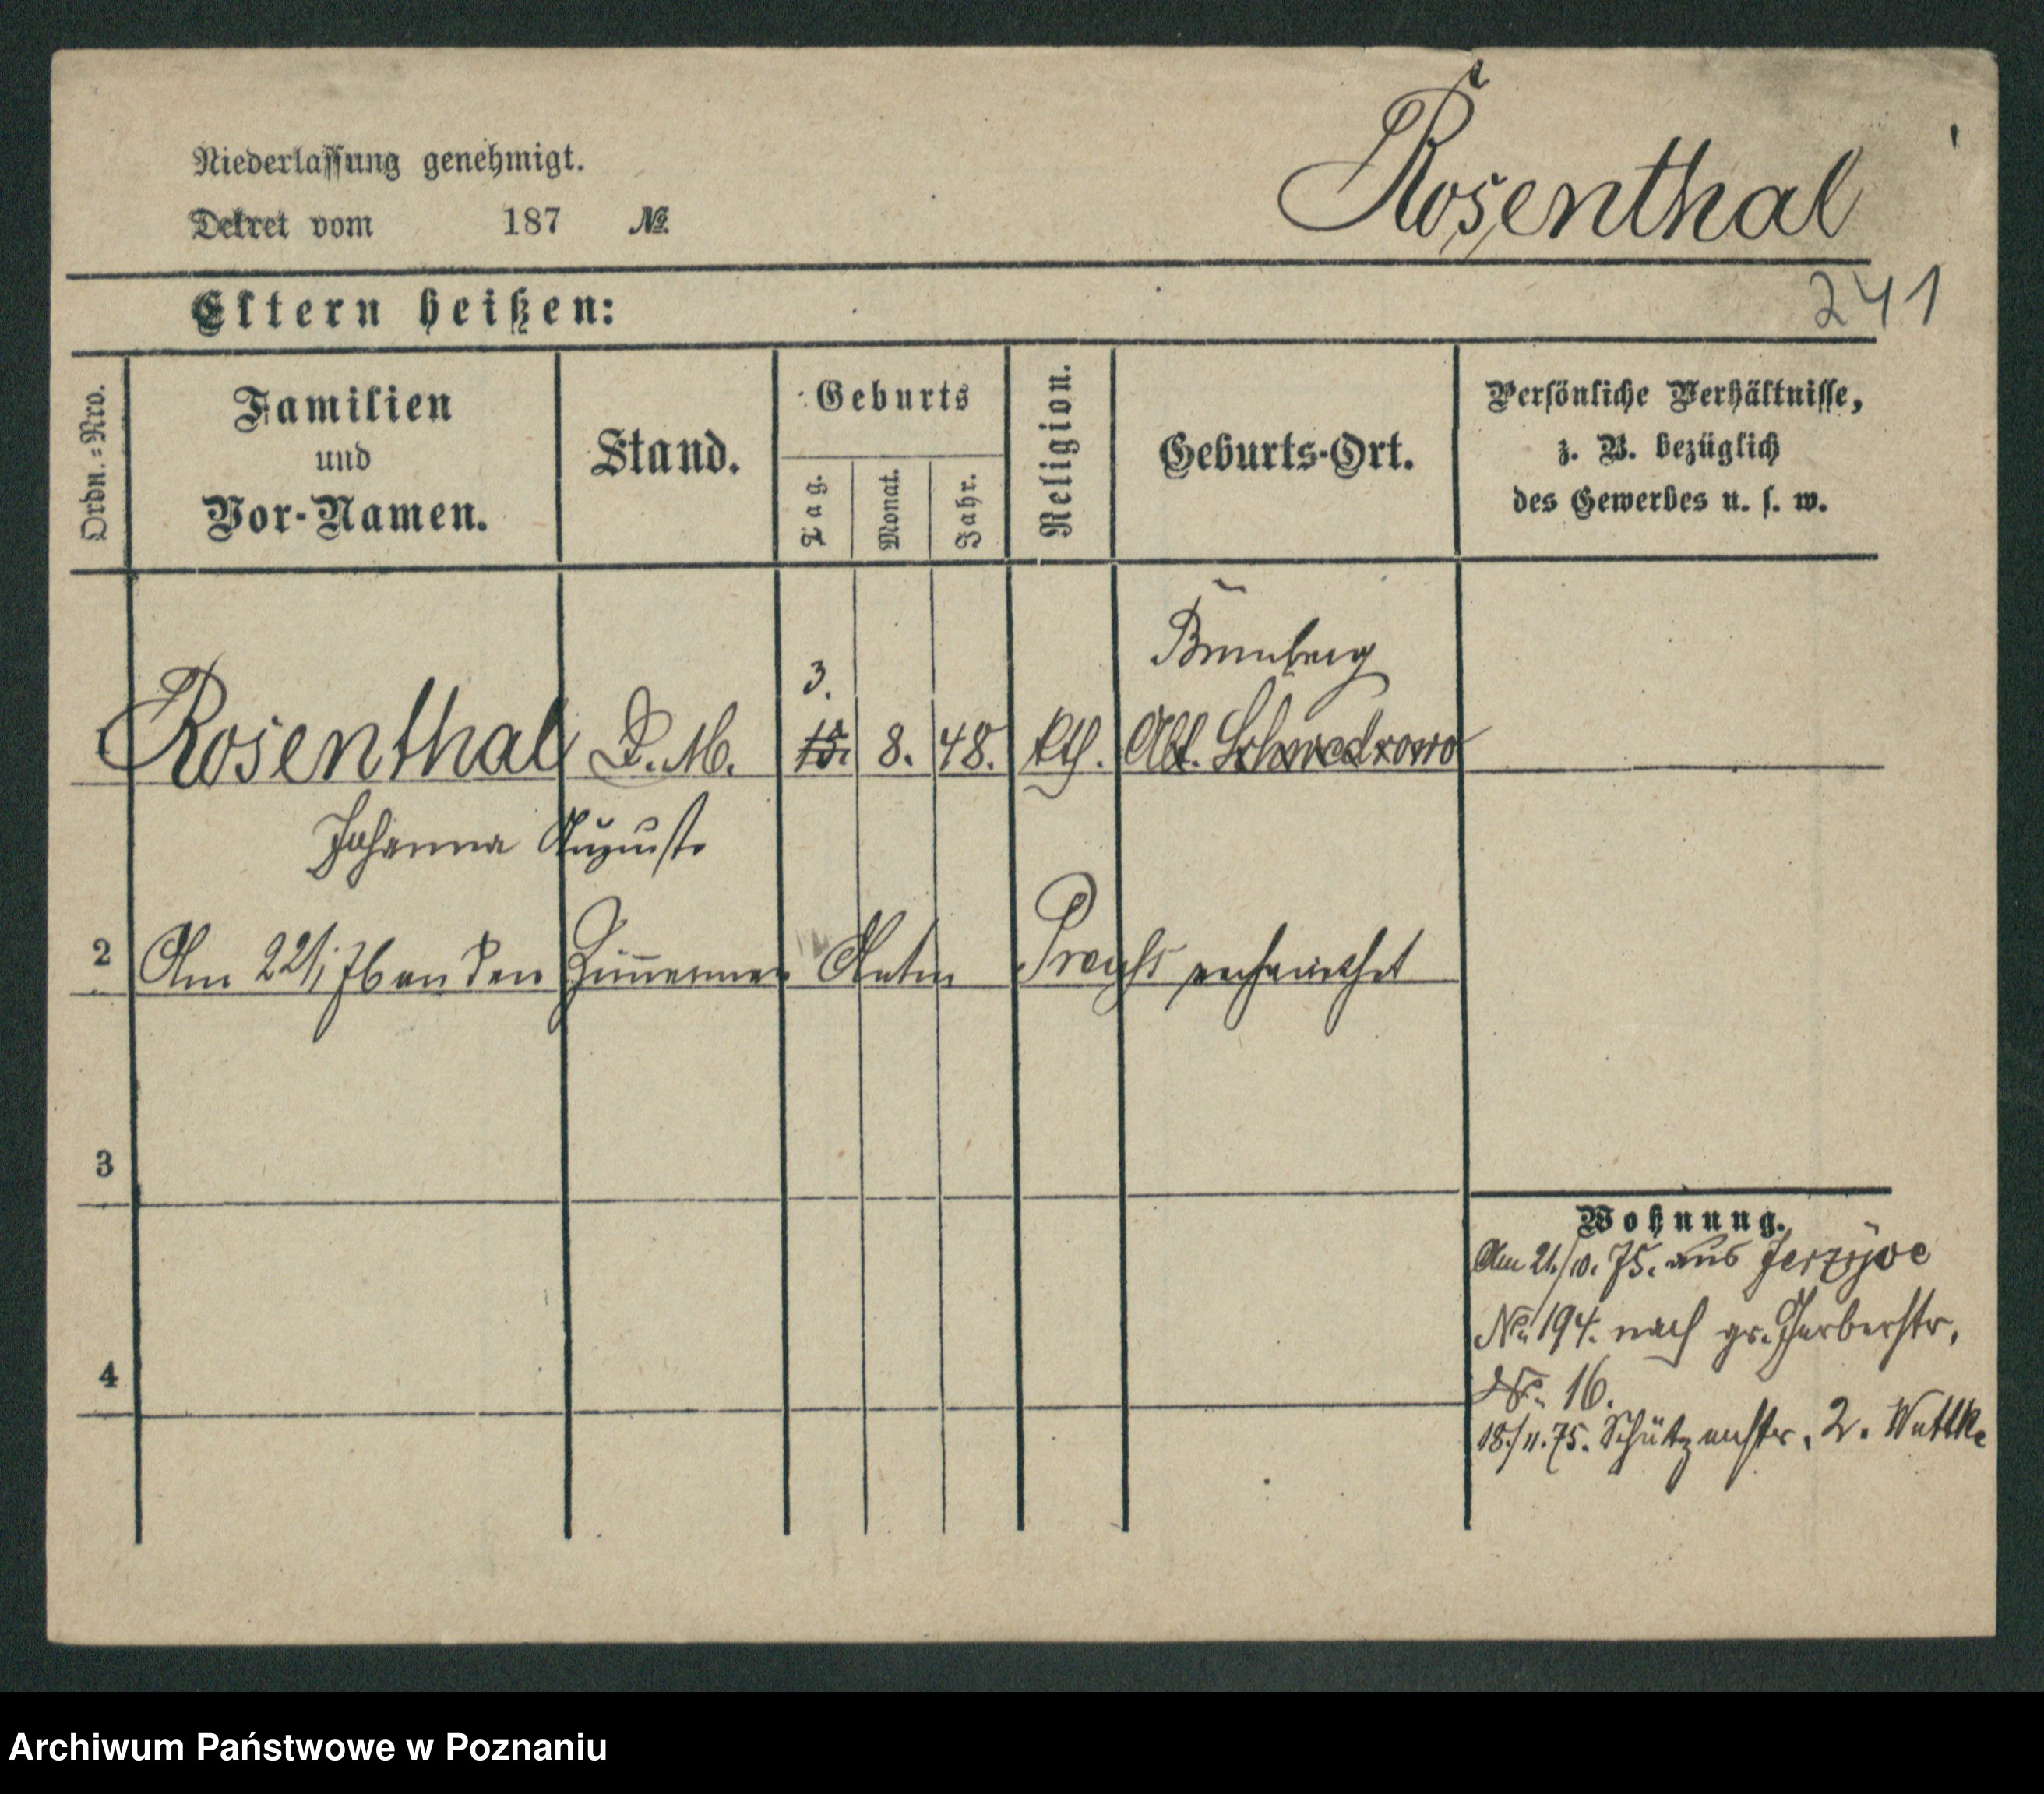 Rosenthal
Niederlassung genehmigt.
Dekret vom 187 №
241
Eltern heißen:
Ordn.=Nro.
Familien
und
Vor-Namen.
Stand.
Geburts
Tag.
Monat.
Jahr.
Religion.
Geburts-Ort.
Persönliche Verhältnisse,
z. B. bezüglich
des Gewerbes u. s. w.
3.
1 Rosenthal D. M. 15. 8. 48. kth. Alt. Schwedrowo
Johanna Auguste
2 Am 22/1 76 an den Zimmerman Anton verheirathet
3
4
Wohnung.
Am 21./10. 75. aus Jerzyce
No 194. nach gr. Gerberstr.
No. 16.
18./11. 75. Schützenstr. 2. Wuttke
Archiwum Państwowe w Poznaniu